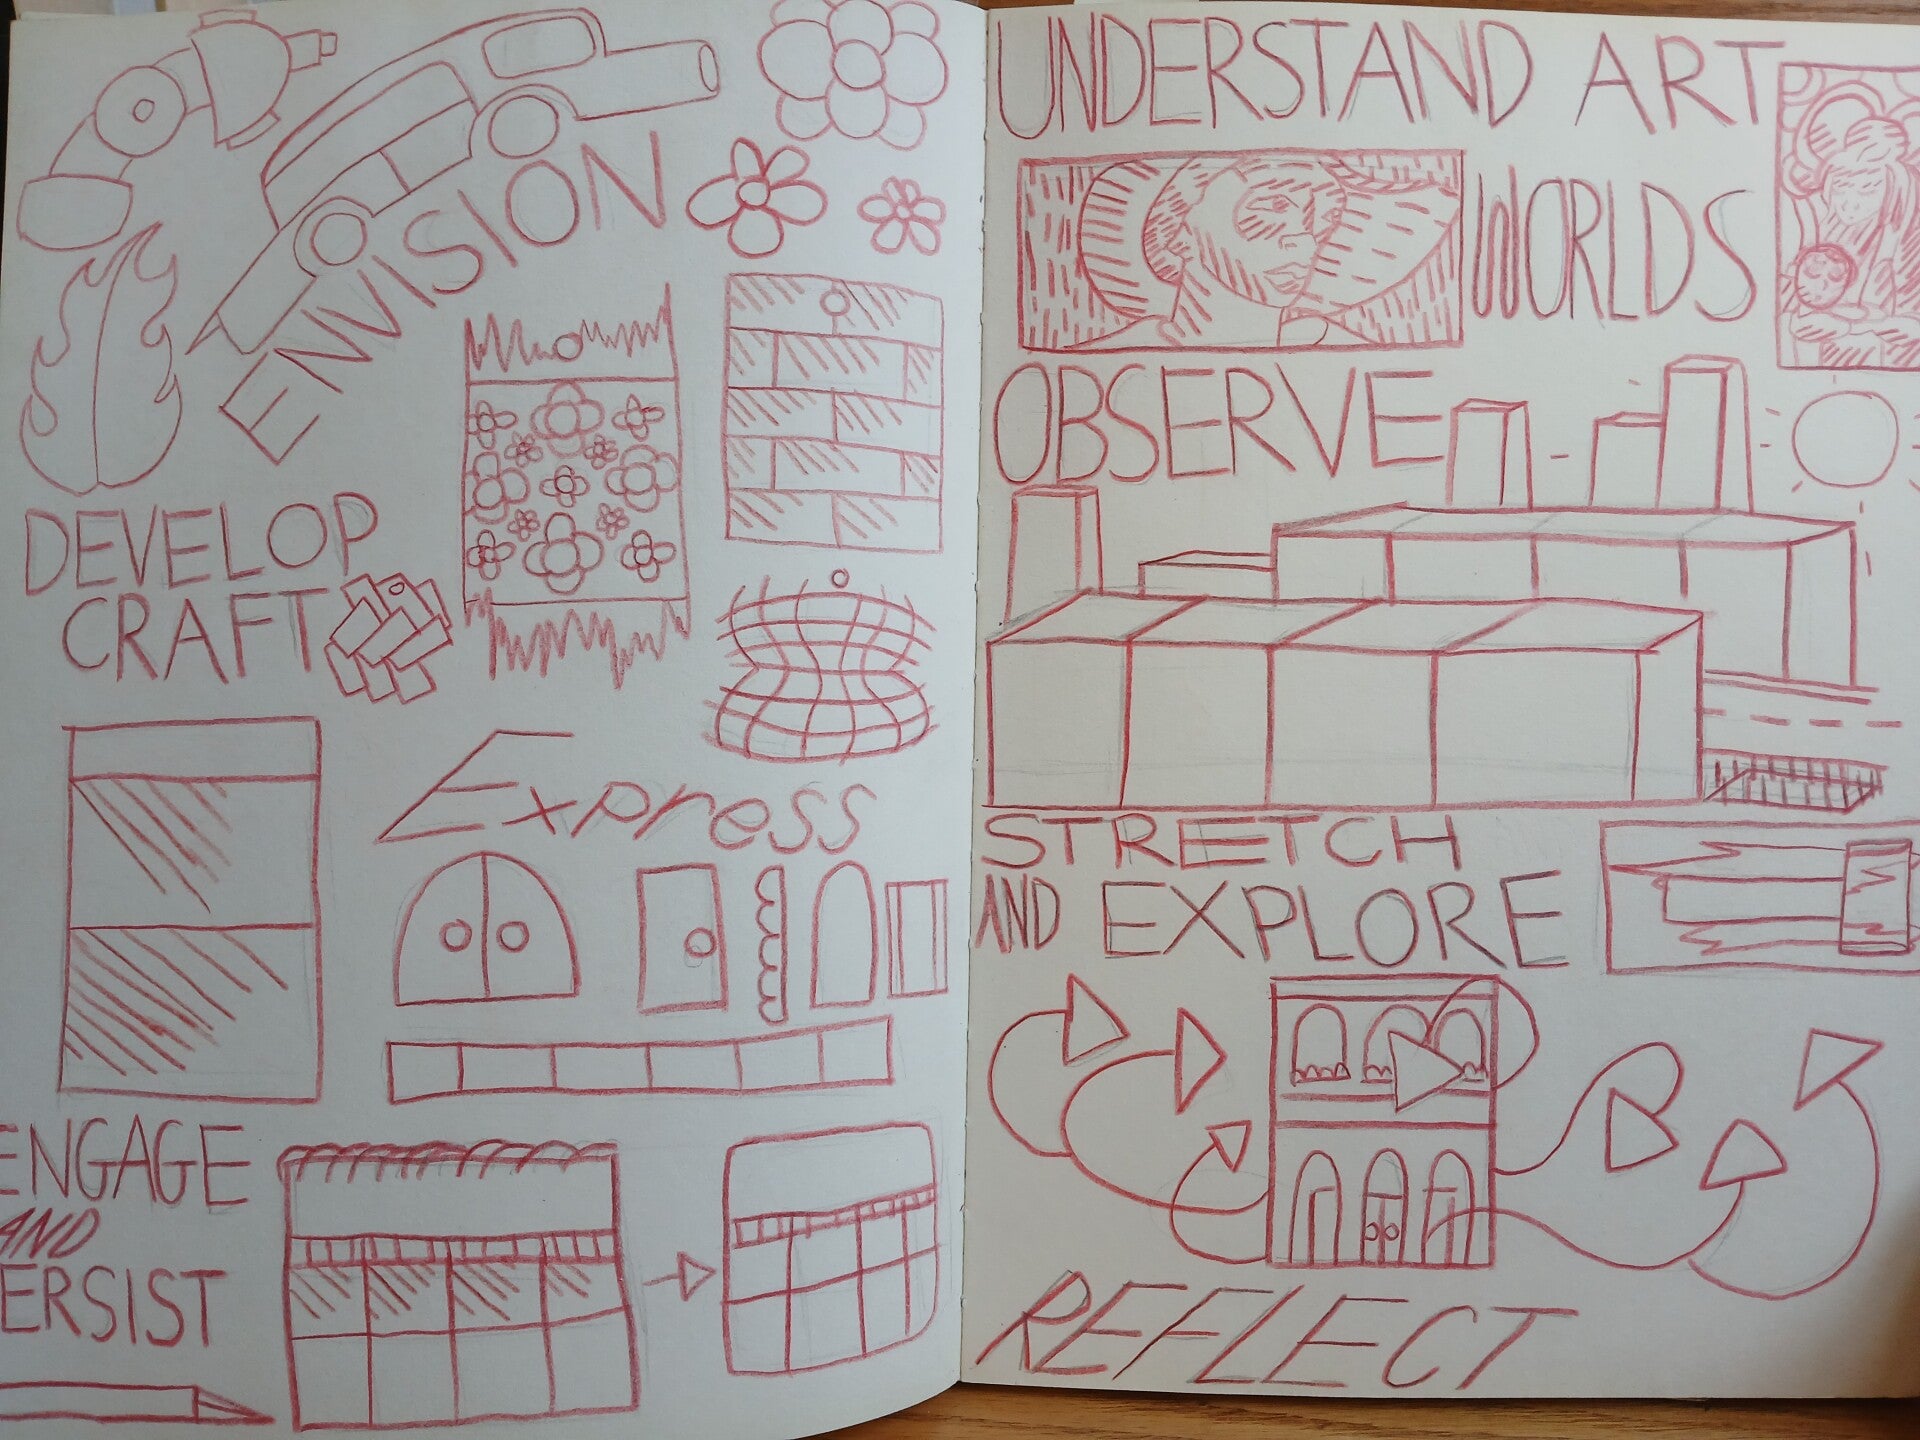 ENVISION
DEVELOP
CRAFT
Express
ENGAGE
AND
ERSIST
UNDERSTAND ART
WORLDS
OBSERVE
STRETCH
AND EXPLORE
REFLECT